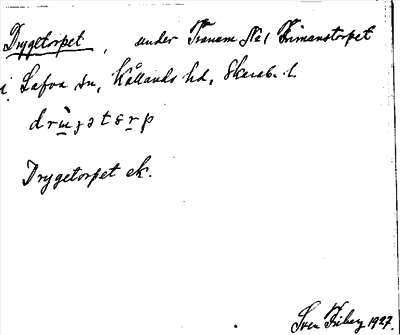 Drygetorpet, under Tranem No 1 Simonstorpet
i Lafva sn, Kållands hd, Skarab. l.
drùʒətɐrp
Drygetorpet ek.
Sven Friberg 1927.